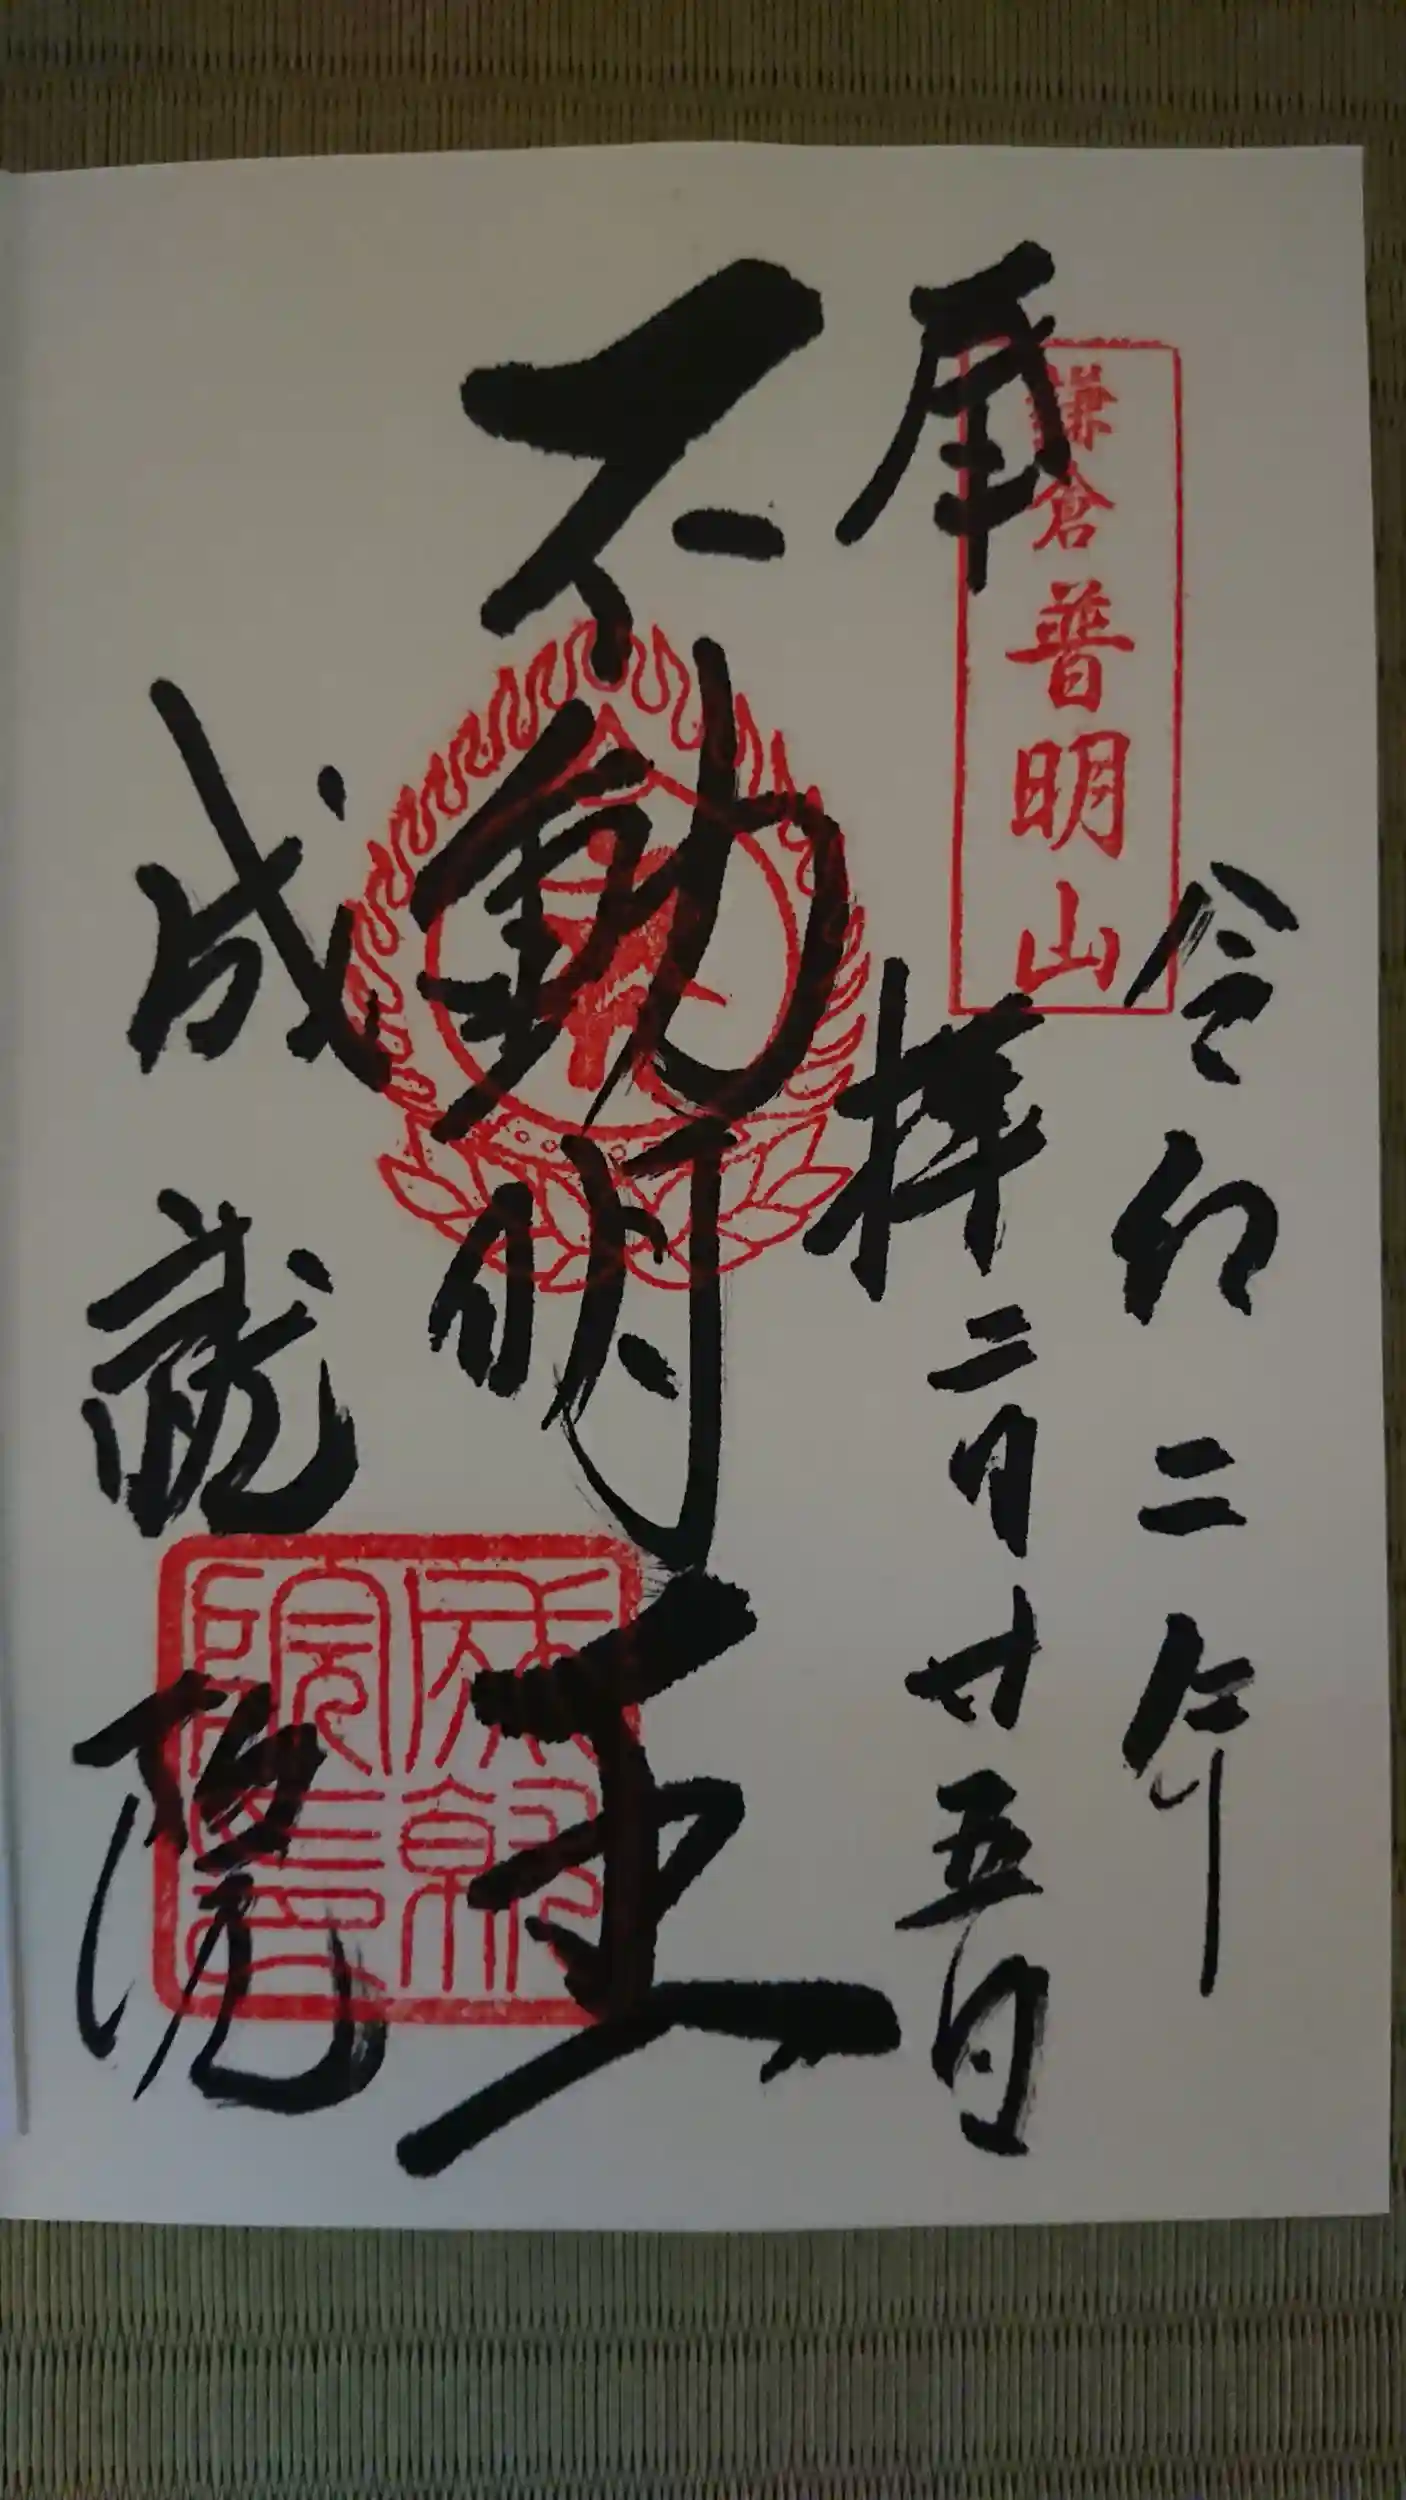 令和二年
二月廿五日
奉拝
鎌倉普明山
不動明王
成就院
成就院印